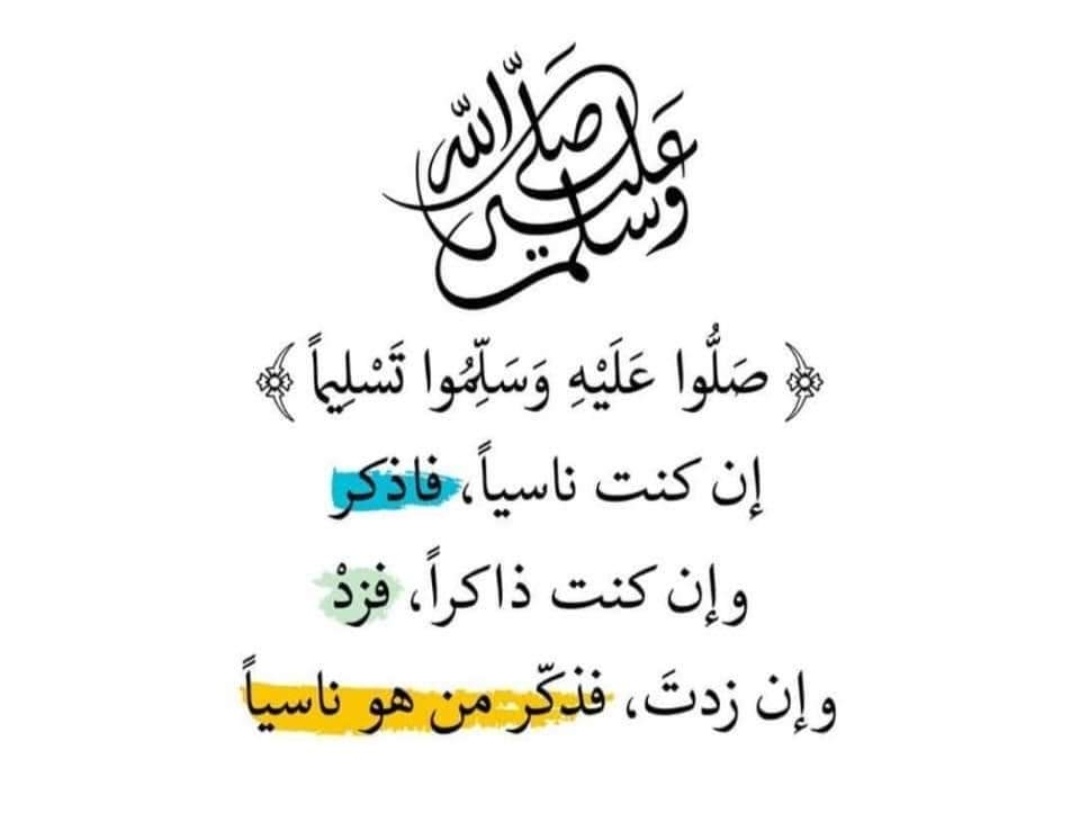 صلى الله عليه وسلم
﴿ صَلُّوا عَلَيْهِ وَسَلِّمُوا تَسْلِيماً ﴾
إن كنت ناسياً، فاذكر
وإن كنت ذاكراً، فزدْ
وإن زدتَ، فذكّر من هو ناسياً